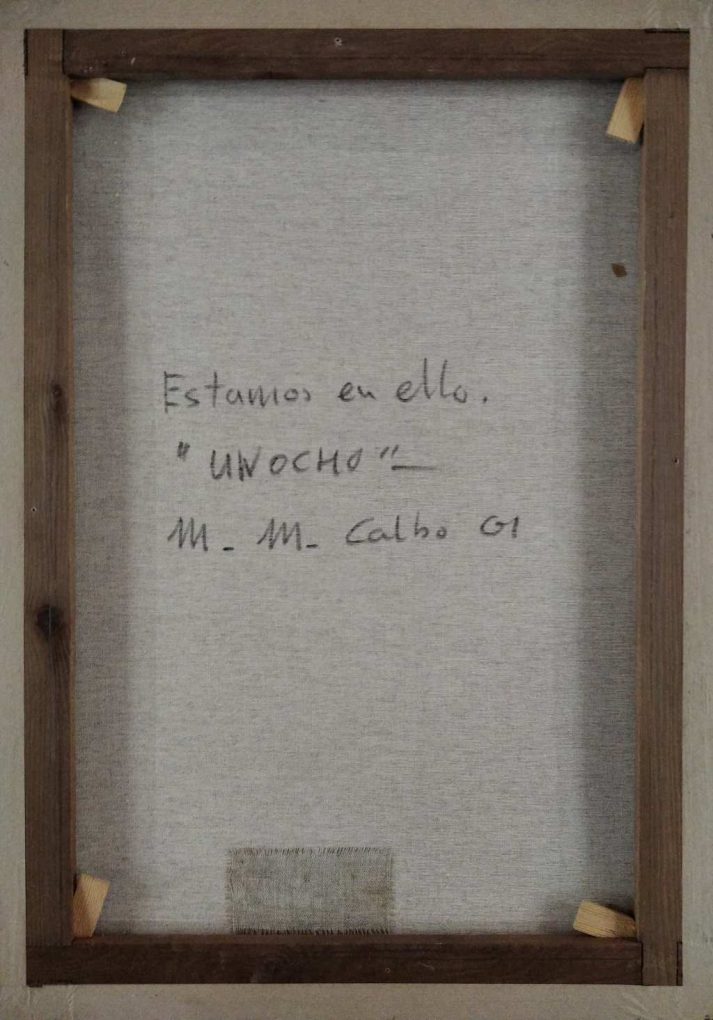 Estamos en ello.
"UNOCHO"—
M. M. Calbo G1